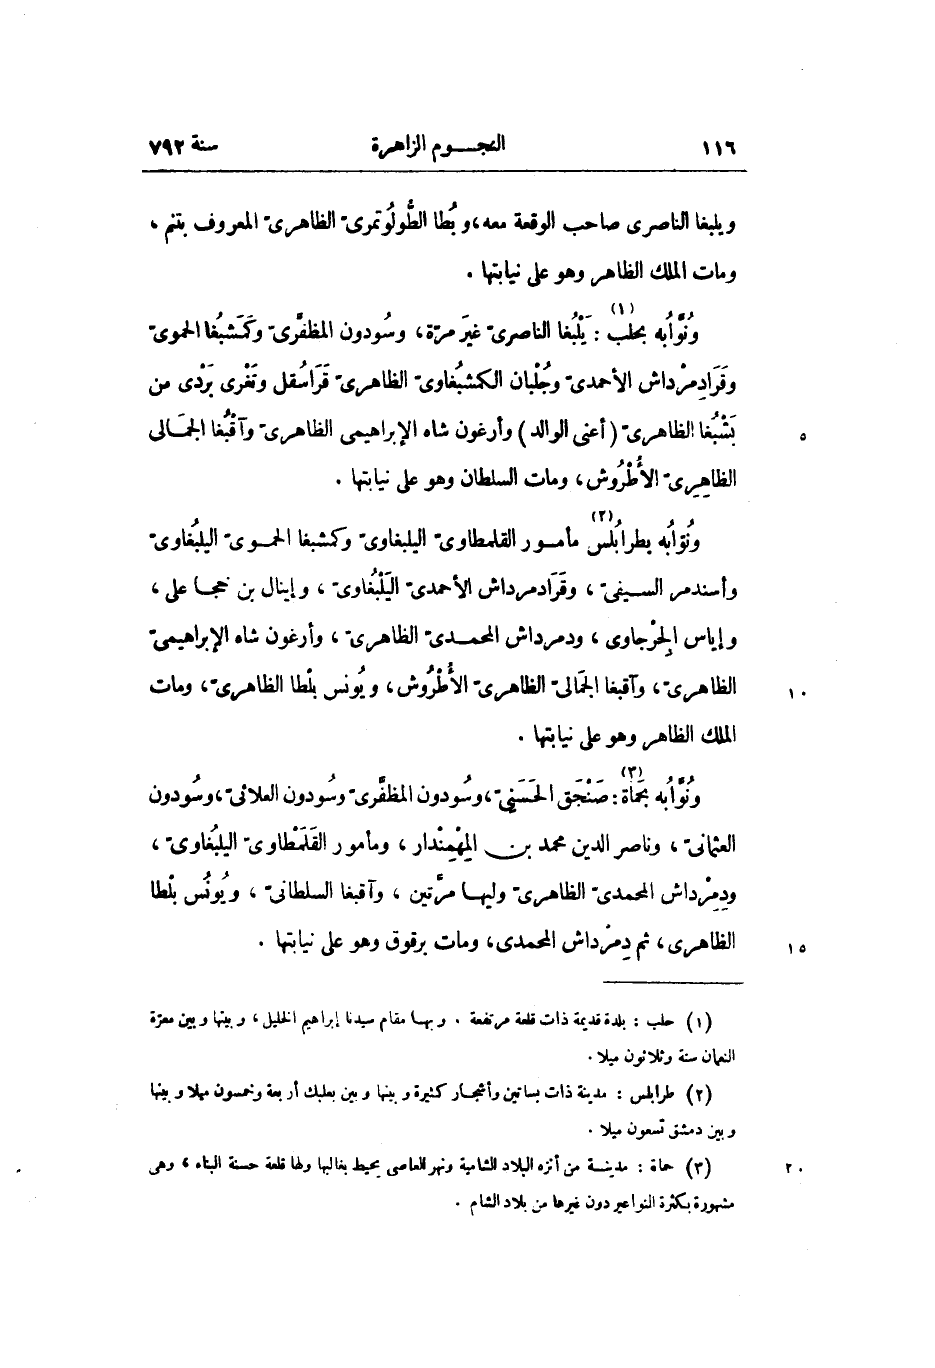 ١١٦ النجـــوم الزاهرة سنة ٧٩٢
ويلبغا الناصرى صاحب الوقعة معه، وبُطا الطُّولُوتمرىّ الظاهرىّ المعروف بتنم ،
ومات الملك الظاهر وهو على نيابتها .
ونُوّابه بحلب(١) : يَلْبُغا الناصرىّ غيرَ مرّة، وسُودون المظفَّرىّ وكَمَشبُغا الحموىّ
وقَرَادِمرْداش الأحمدىّ وجُلْبان الكشبُغاوىّ الظاهرىّ قَرَاسُقل وتَغْرى بَرْدى من
بَشْبُغا الظاهرىّ (أعنى الوالد) وأرغون شاه الإبراهيمى الظاهرىّ وآقْبُغا الجمَالى
الظاهِرىّ الأُطْرُوش، ومات السلطان وهو على نيابتها .
ونُوّابُه بطرابُلُس(٢) مأمـور القلمطاوىّ اليلبغاوىّ وكمشبغا الحمـوىّ اليلبُغاوىّ
وأسندمر السـيفىّ ، وقَرَادمرداش الأحمدىّ اليَلْبُغاوىّ ، وإينال بن خجـا على ،
وإياس الِجرْجاوى ، ودمرداش المحمـدىّ الظاهرىّ ، وأرغون شاه الإبراهيمىّ
الظاهرىّ ، وآقبغا الجمَالىّ الظاهرىّ الأُطْرُوش ، ويُونس بلْطا الظاهرىّ ، ومات ١٠
الملك الظاهر وهو على نيابتها .
ونُوّابُه بحَمَاة(٣) : صَنْجَق الحَسَنِىّ ، وسُودون المظفَّرى وسُودون العلائىّ ، وسُودون
العثمانىّ ، وناصر الدين محمد بن المِهْمِنْدار ، ومأمور القَلَمْطاوىّ اليلبُغاوىّ ،
ودِمِرْداش المحمدىّ الظاهرىّ وليهـا مرَّتين ، وآقبغا السلطانىّ ، ويُونُس بلْطا
الظاهرى ، ثم دِمرْداش المحمدى ، ومات برقوق وهو على نيابتها . ١٥
(١) حلب : بلدة قديمة ذات قلعة مرتفعة . وبهـا مقام سيدنا إبراهيم الخليل ، وبينها وبين معرّة
النعمان ستة وثلاثون ميلا .
(٢) طرابلس : مدينة ذات بساتين وأشجـار كثيرة وبينها وبين بعلبك أربعة وخمسون ميلا وبينها
وبين دمشق تسعون ميلا .
(٣) حماة : مدينـة من أنزه البلاد الشامية ونهر العاصى يحيط بغالبها ولها قلعة حسنة البناء ، وهى ٢٠
مشهورة بكثرة النواعير دون غيرها من بلاد الشام .